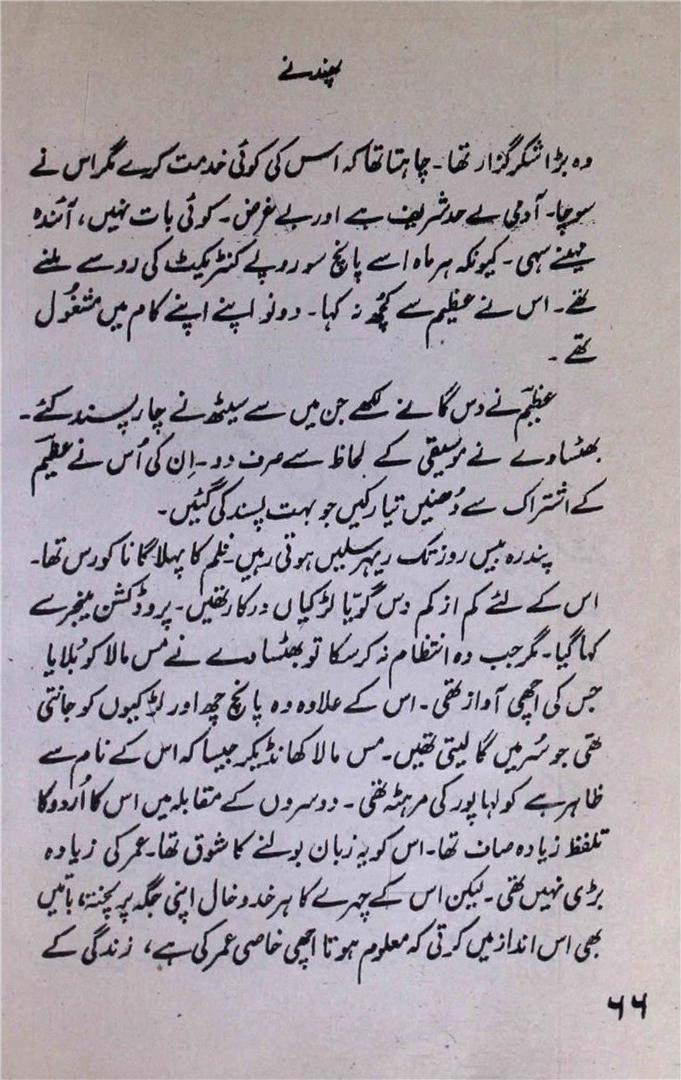 پھندنے
وہ بڑا شکر گزار تھا۔ چاہتا تھا کہ اس کی کوئی خدمت کرے مگر اس نے
سوچا۔ آدمی بے حد شریف ہے اور بے غرض۔ کوئی بات نہیں، آئندہ
مہینے سہی۔ کیونکہ ہر ماہ اسے پانچ سو روپے کنٹریکٹ کی رو سے ملنے
تھے۔ اس نے عظیم سے کچھ نہ کہا۔ دونو اپنے اپنے کام میں مشغُول
تھے۔
عظیم نے دس گانے لکھے جن میں سے سیٹھ نے چار پسند کئے۔
بھٹساوے نے موسیقی کے لحاظ سے صرف دو۔ اِن کی اُس نے عظیم
کے اشتراک سے دُھنیں تیار کیں جو بہت پسند کی گئیں۔
پندرہ بیس روز تک ریہرسلیں ہوتی رہیں۔ فلم کا پہلا گانا کورس تھا۔
اس کے لئے کم از کم دس گویّا لڑکیاں درکار تھیں۔ پروڈکشن مینجر سے
کہا گیا۔ مگر جب وہ انتظام نہ کر سکا تو بھٹساوے نے مس مالا کو بُلایا
جس کی اچھی آواز تھی۔ اس کے علاوہ وہ پانچ چھ اور لڑکیوں کو جانتی
تھی جو سُر میں گا لیتی تھیں۔ مس مالا کھانڈیکر جیسا کہ اس کے نام سے
ظاہر ہے کولہا پور کی مرہٹہ تھی۔ دوسروں کے مقابلہ میں اس کا اُردو کا
تلفظ زیادہ صاف تھا۔ اس کو یہ زبان بولنے کا شوق تھا۔ عمر کی زیادہ
بڑی نہیں تھی۔ لیکن اس کے چہرے کا ہر خدوخال اپنی جگہ پر پختہ، باتیں
بھی اس انداز میں کرتی کہ معلوم ہوتا اچھی خاصی عمر کی ہے، زندگی کے
۶۶